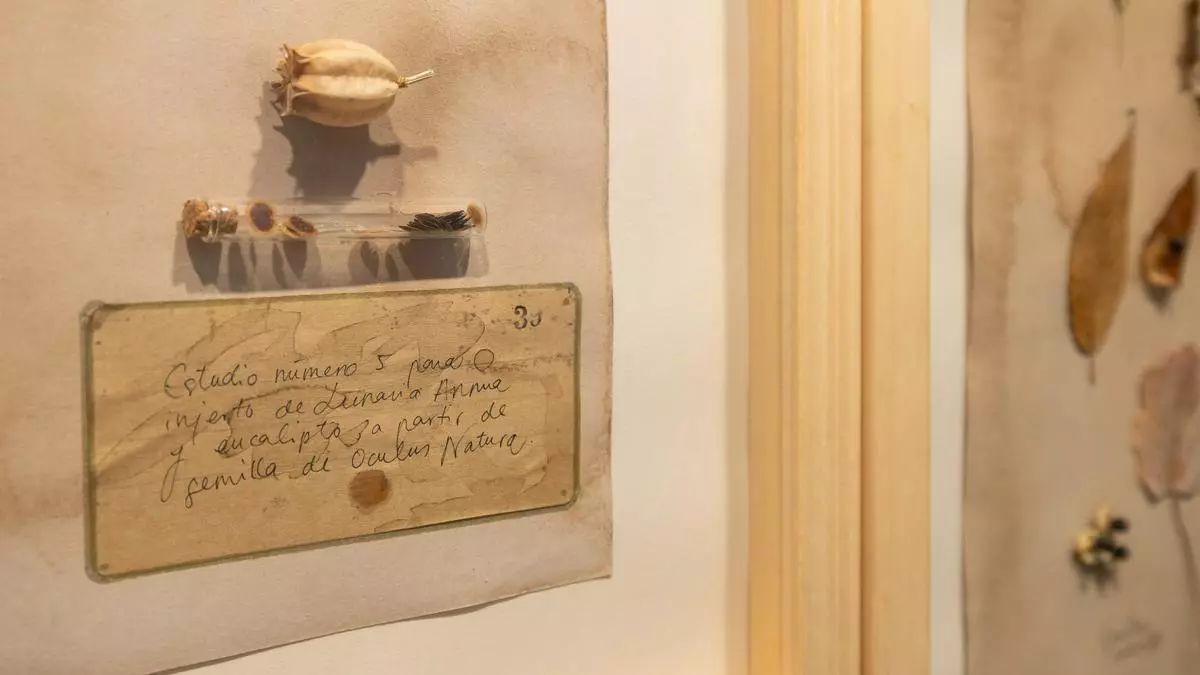 39
Estudio número 5 para
injerto de Lunaria Annua
y eucalipto, a partir de
semilla de Oculus Natura.